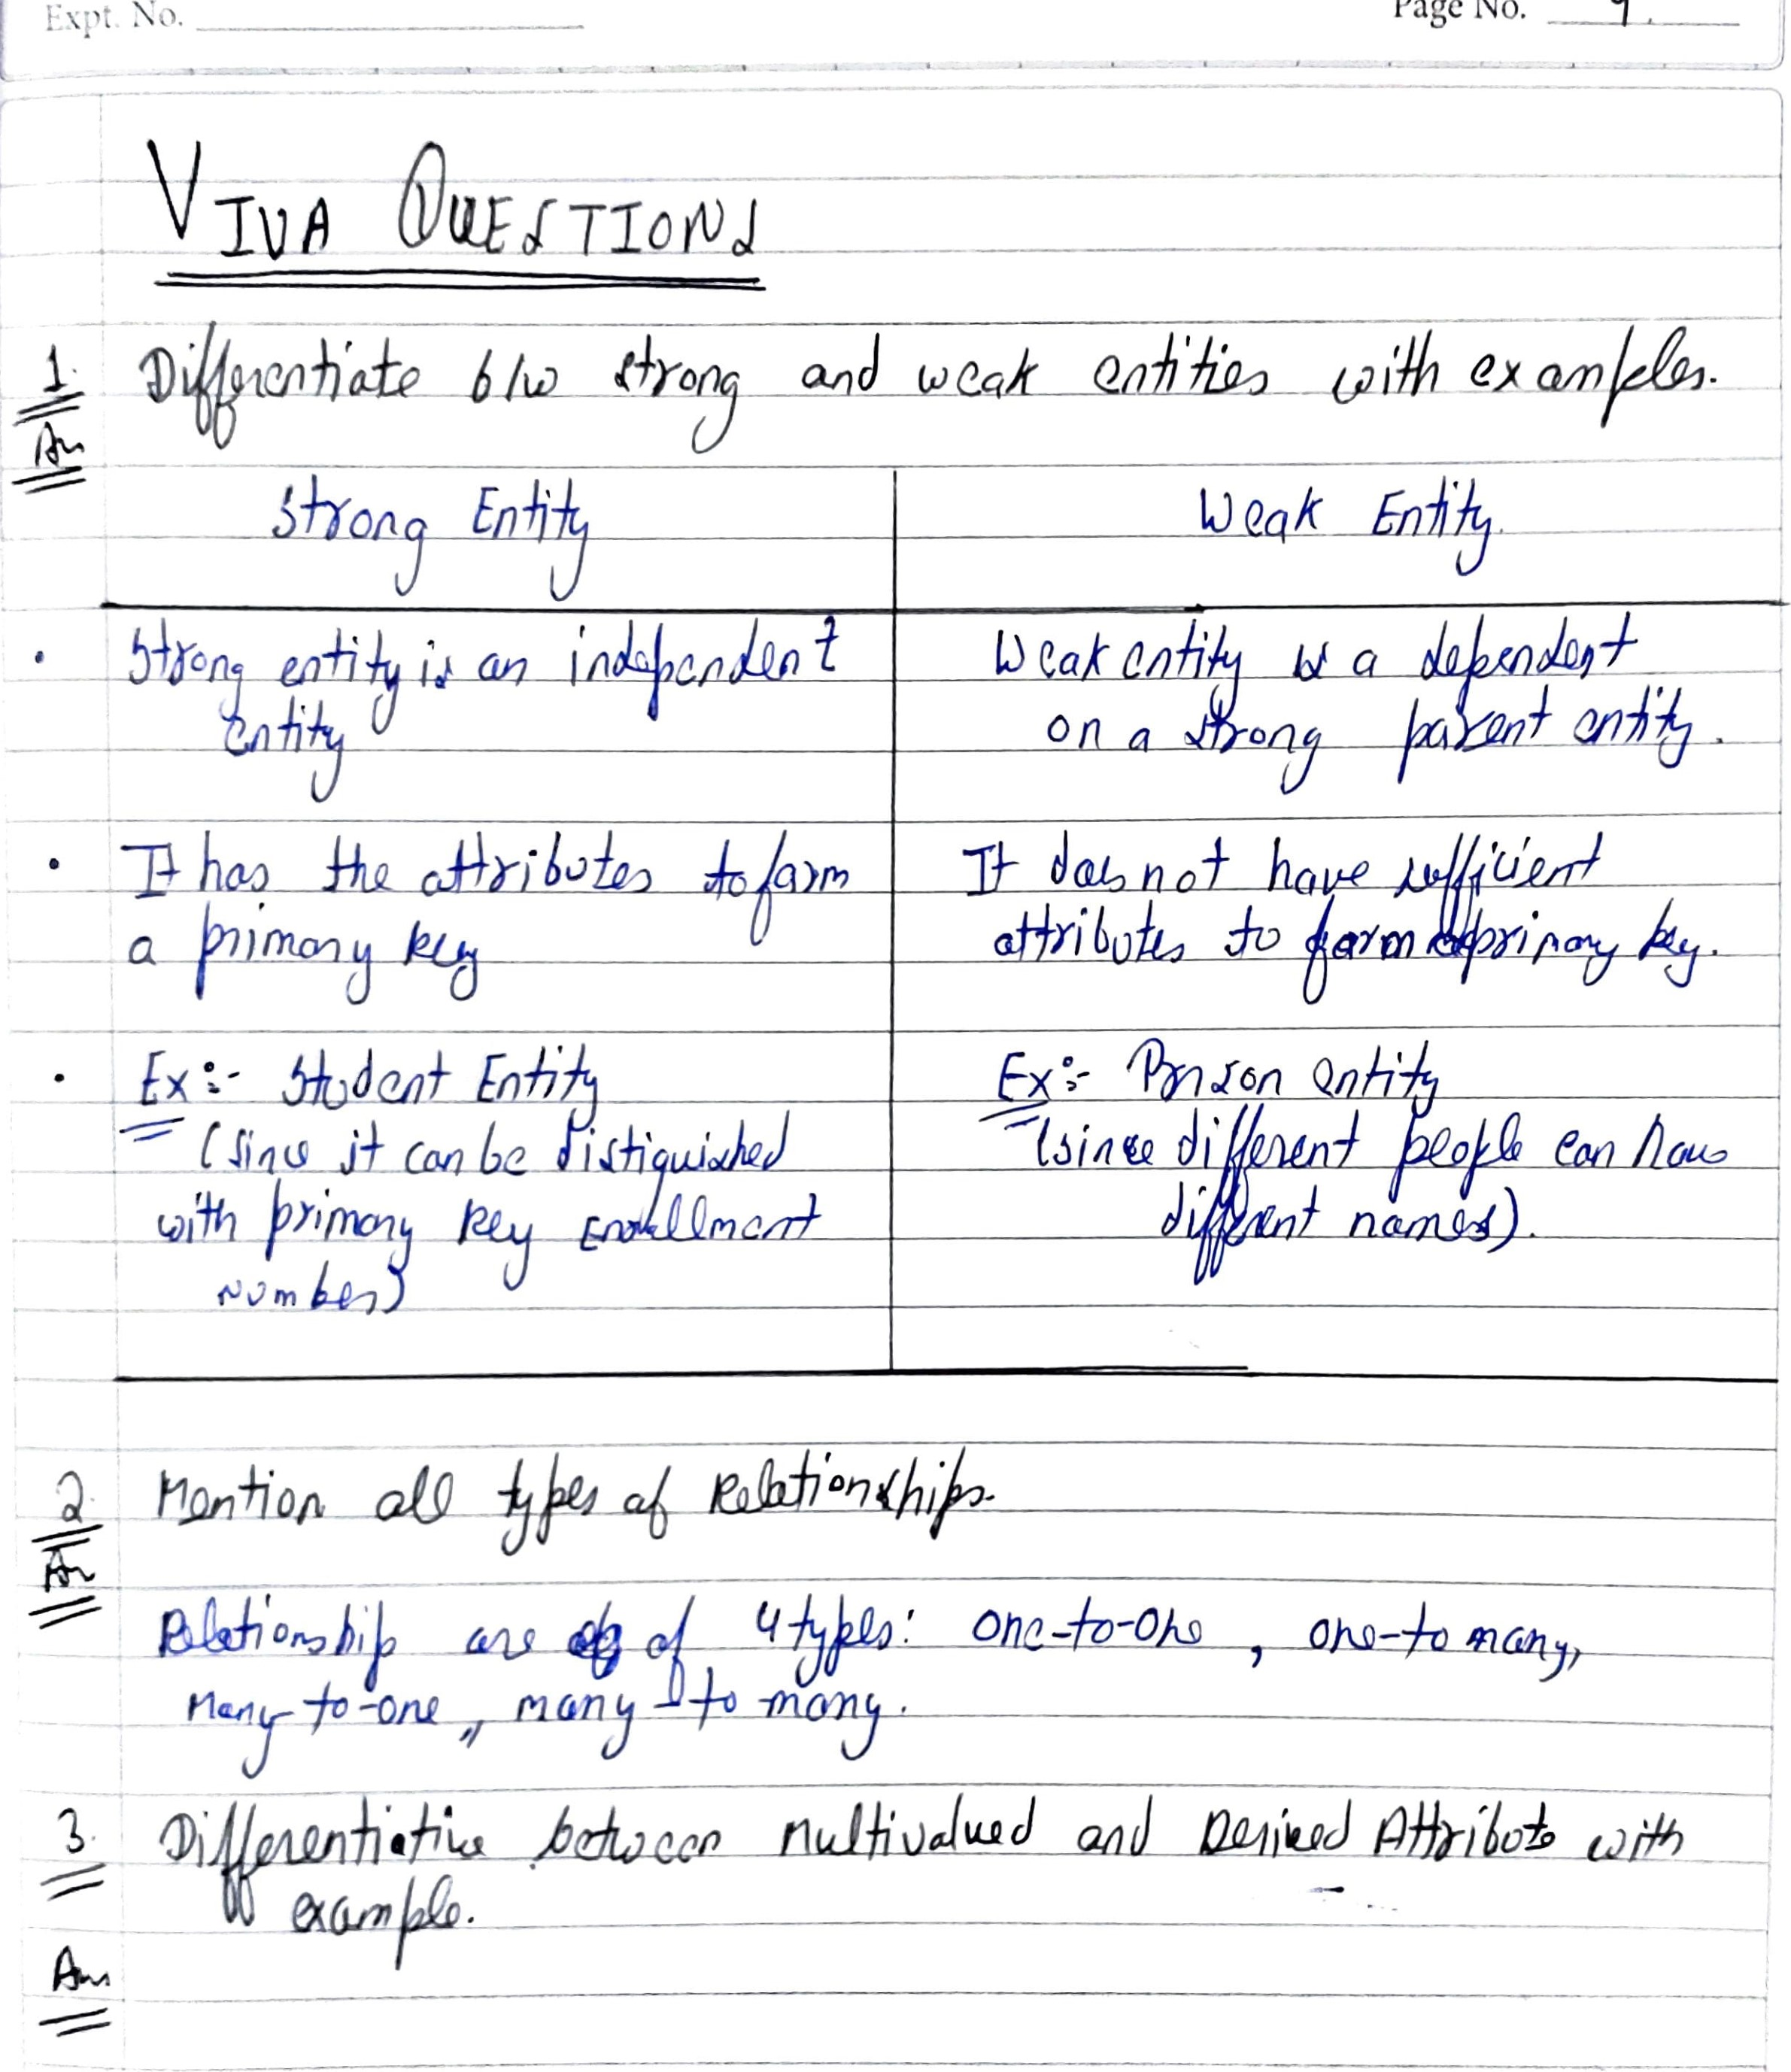 Expt. No.
Page No. 9.
VIVA QUESTIONS
1. Differentiate b/w strong and weak entities with examples.
Ans
Strong Entity
Weak Entity.
• Strong entity is an independent
entity
Weak entity is a dependent
on a strong parent entity.
• It has the attributes to form
a primary key
It does not have sufficient
attributes to form a primary key.
• Ex:- Student Entity
(since it can be distiquished
with primary key Enrollment
Number)
Ex:- Person entity
(since different people can have
different names).
2. Mention all types of Relationships.
Ans
Relationship are of 4 types: one-to-one, one-to many,
Many-to-one,, many-to many.
3. Differentiative between Multivalued and Derived Attribute with
example.
Ans